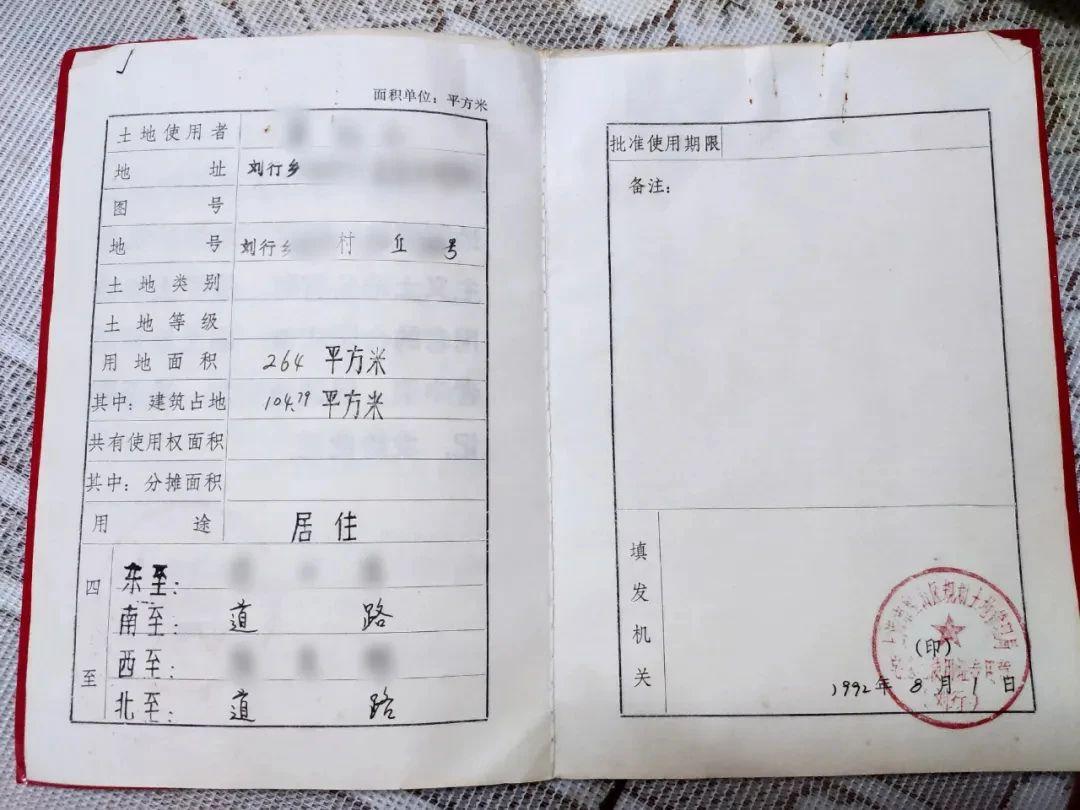 面积单位：平方米
土地使用者
地址 刘行乡
图号
地号 刘行乡 村 丘 号
土地类别
土地等级
用地面积 264 平方米
其中：建筑占地 104.79 平方米
共有使用权面积
其中：分摊面积
用途 居住
四至
东至：
南至： 道路
西至：
北至： 道路
批准使用期限
备注：
填发机关
(印)
1992年 8月 1日